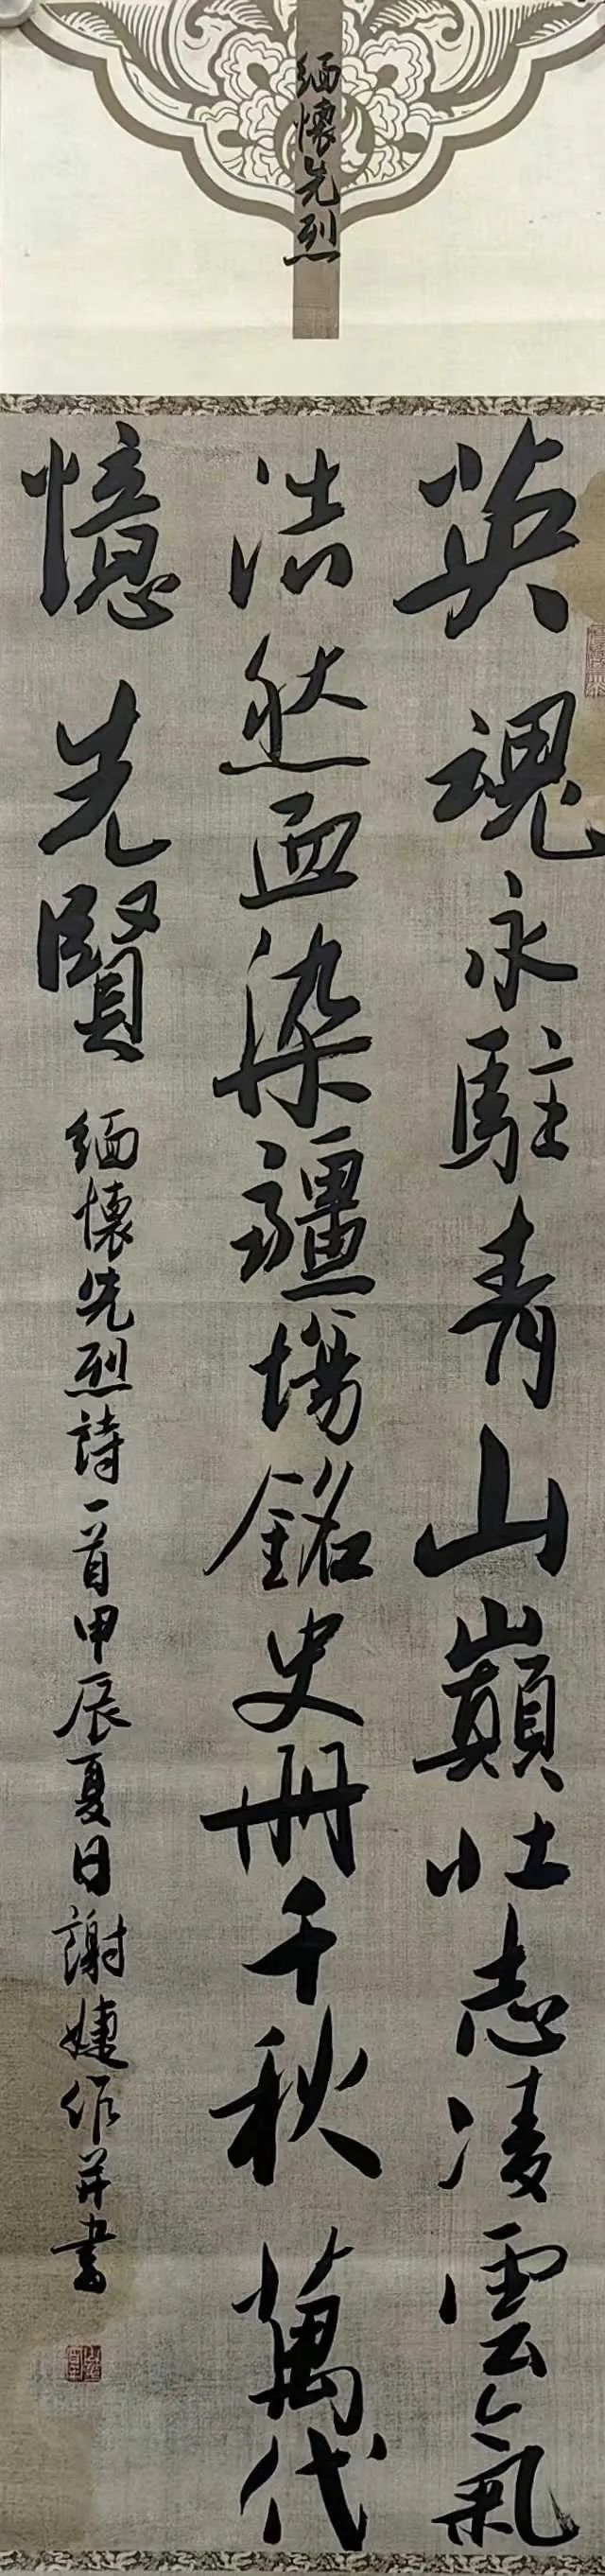 缅懷先烈
英魂永駐青山巔壮志凌雲氣
浩然血染疆場銘史册千秋萬代
憶先賢
缅懷先烈詩一首甲辰夏日謝婕作并書